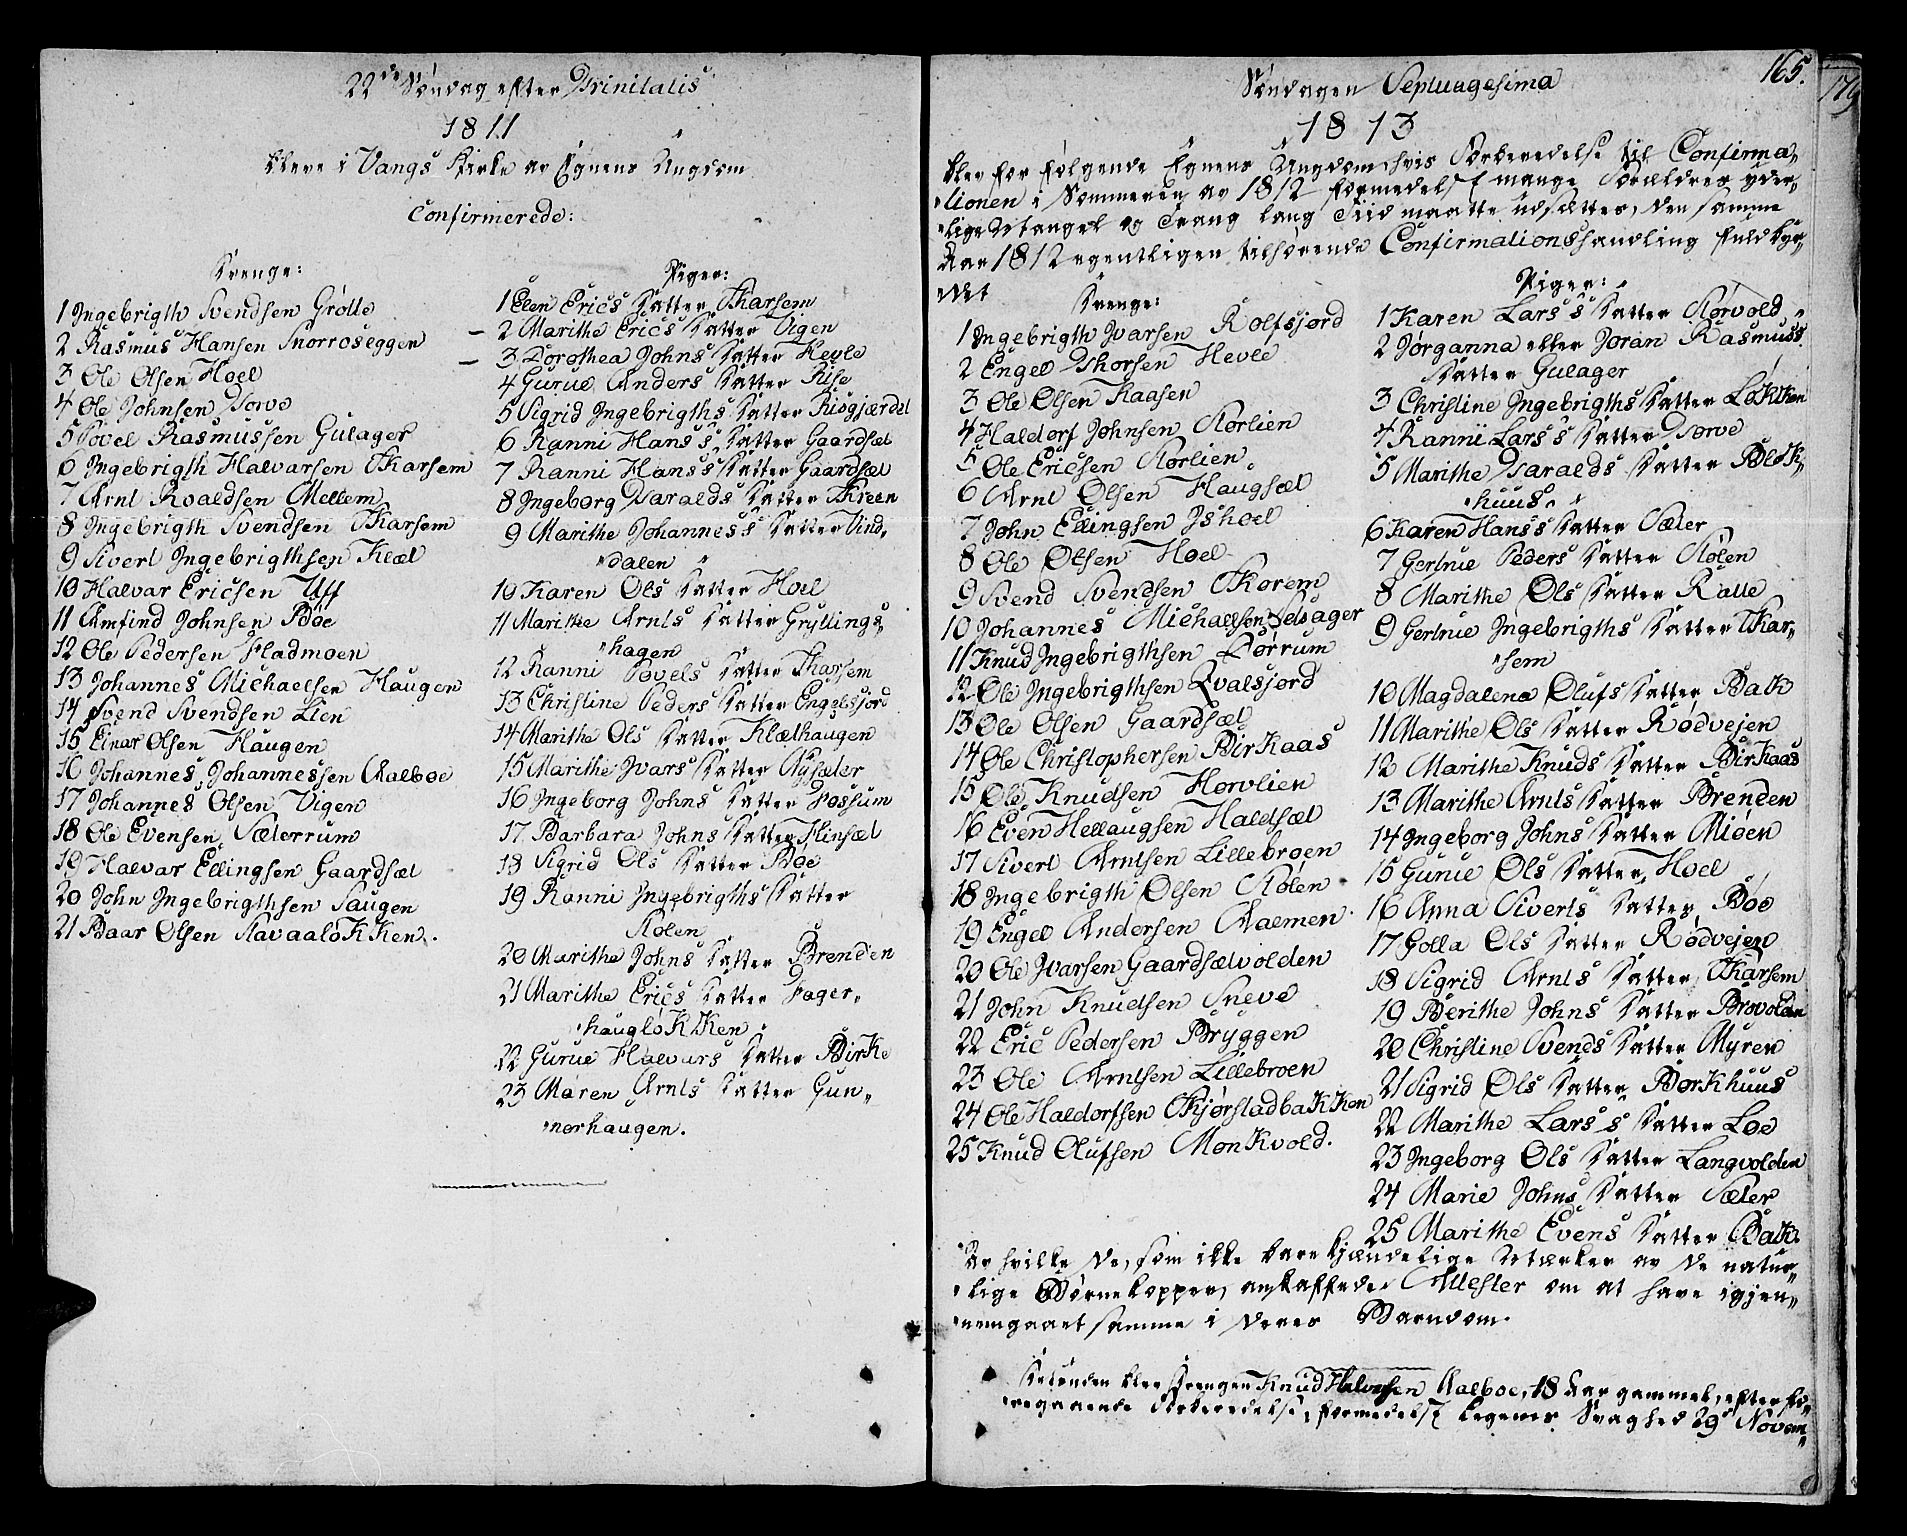 22de Søndag efter Trinitatis
1811
bleve i Vangs Kirke av Egnens Ungdom
Confirmerede:
Drenge:
1 Ingebrigth Svendsen Grötte
2 Rasmus Hansen Snorroseggen
3 Ole Olsen Hoel
4 Ole Johnsen Dorve
5 Povel Rasmussen Gulager
6 Ingebrigth Halvarsen Skarsem
7 Arnt Roaldsen Mellem
8 Ingebrigth Svendsen Skarsem
9 Sivert Ingebrigthsen Klæt
10 Halvar Ericsen Uff
11 Amfind Johnsen Böe
12 Ole Pedersen Fladmoen
13 Johannes Michaelsen Haugen
14 Svend Svendsen Lien
15 Einar Olsen Haugen
16 Johannes Johannessen Aalboe
17 Johannes Olsen Vigen
18 Ole Evensen Sæterrum
19 Halvar Ellingsen Gaardsæt
20 John Ingebrigthsen Saugen
21 Baar Olsen Navaalökken.
Piger:
1 Elen Erics Datter Skarsem
- 2 Marithe Erics Datter Vigen
- 3 Dorothea Johns Datter Hevle
4 Gurue Anders Datter Rise
5 Sigrid Ingebrigths Datter Risgjærdet
6 Ranni Hans's Datter Gaardsæt
7 Ranni Hans's Datter Gaardsæt
8 Ingeborg Haralds Datter Skreen
9 Marithe Johannes's Datter Vind,,
,,dalen
10 Karen Ols Datter Hoel
11 Marithe Arnts Datter Gryllings,,
,,hagen
12 Ranni Povels Datter Skarsem
13 Christine Peders Datter Engelsjord
14 Marithe Ols Datter Klæthaugen
15 Marithe Ivars Datter Nysæter
16 Ingeborg Johns Datter Fossum
17 Barbara Johns Datter Flinsæt
18 Sigrid Ols Datter Böe
19 Ranni Ingebrigths Datter
Mölen
20 Marithe Johns Datter Brenden
21 Marithe Erics Datter Fager,,
,,hauglökken
22 Gurue Halvars Datter Birke
23 Maren Arnts Datter Gun,,
,,norhaugen.
165.
179
Søndagen Septuagesima
1813
blev for følgende Egnens Ungdom, hvis Forberedelse til Confirma,,
,,tionen i Sommeren av 1812 formedelst mange Forældres yder,,
,,lige Mangel og Trang lang Tiid maatte udsættes, den samme
Aar 1812 egentligen tilhørende Confirmationshandling fuldbyr,,
,,det
Drenge:
1 Ingebrigth Ivarsen Rolfsjord
2 Engel Thorsen Hevle
3 Ole Olsen Kaasen
4 Haldorf Johnsen Nörlien
5 Ole Ericsen Nörlien
6 Arnt Olsen Haugsæt
7 John Ellingsen Ishoel
8 Ole Olsen Hoel
9 Svend Svendsen Skorem
10 Johannes Michaelsen Detsager
11 Knud Ingebrigthsen Dörrum
12 Ole Ingebrigthsen Qvalsjord
13 Ole Olsen Gaardsæt
14 Ole Christophersen Birkaas
15 Ole Knudsen Horvlien
16 Even Hellaugsen Haldsæt
17 Sivert Arntsen Lillebroen
18 Ingebrigth Olsen Mölen
19 Engel Andersen Aalmen
20 Ole Ivarsen Gaardsætvolden
21 John Knudsen Sneve
22 Eric Pedersen Bryggen
23 Ole Arntsen Lillebroen
24 Ole Haldorfsen Skjörstadbakken
25 Knud Olufsen Monkvold.
Piger:
1 Karen Lars's Datter Nörvold
2 Jörganna eller Joran Rasmuss
Datter Gulager
3 Christine Ingebrigths Datter Lökken
4 Ranni Lars's Datter Dorve
5 Marithe Haralds Datter Blek,,
,,huus
6 Karen Hans's Datter Sæter
7 Gertrue Peders Datter Mölen
8 Marithe Ols Datter Ralle
9 Gertrue Ingebrigths Datter Skar,,
,,sem
10 Magdalena Olufs Datter Bak
11 Marithe Ols Datter Rödvejen
12 Marithe Knuds Datter Birkaas
13 Marithe Arnts Datter Brenden
14 Ingeborg Johns Datter Miöen
15 Gurue Ols Datter Hoel
16 Anna Siverts Datter Böe
17 Golla Ols Datter Rödvejen
18 Sigrid Arnts Datter Skarsem
19 Berithe Johns Datter Brovolden
20 Christine Svends Datter Myren
21 Sigrid Ols Datter Borkhuus
22 Marithe Lars's Datter Löe
23 Ingeborg Ols Datter Langvolden
24 Marie Johns Datter Sæter
25 Marithe Evens Datter Bak.
Av hvilke de, som ikke bare kjændelige Mærker av de natur,,
,,lige Børnekopper, anskaffede Attester om at have igjen,,
,,nemgaaet samme i deres Barndom.
Desuden blev Drengen Knud Halvorsen Aalboe, 18 Aar gammel, efter fo,,
,,regaaende Forberedelse, formedelst Legems Svaghed 29de Novem,,